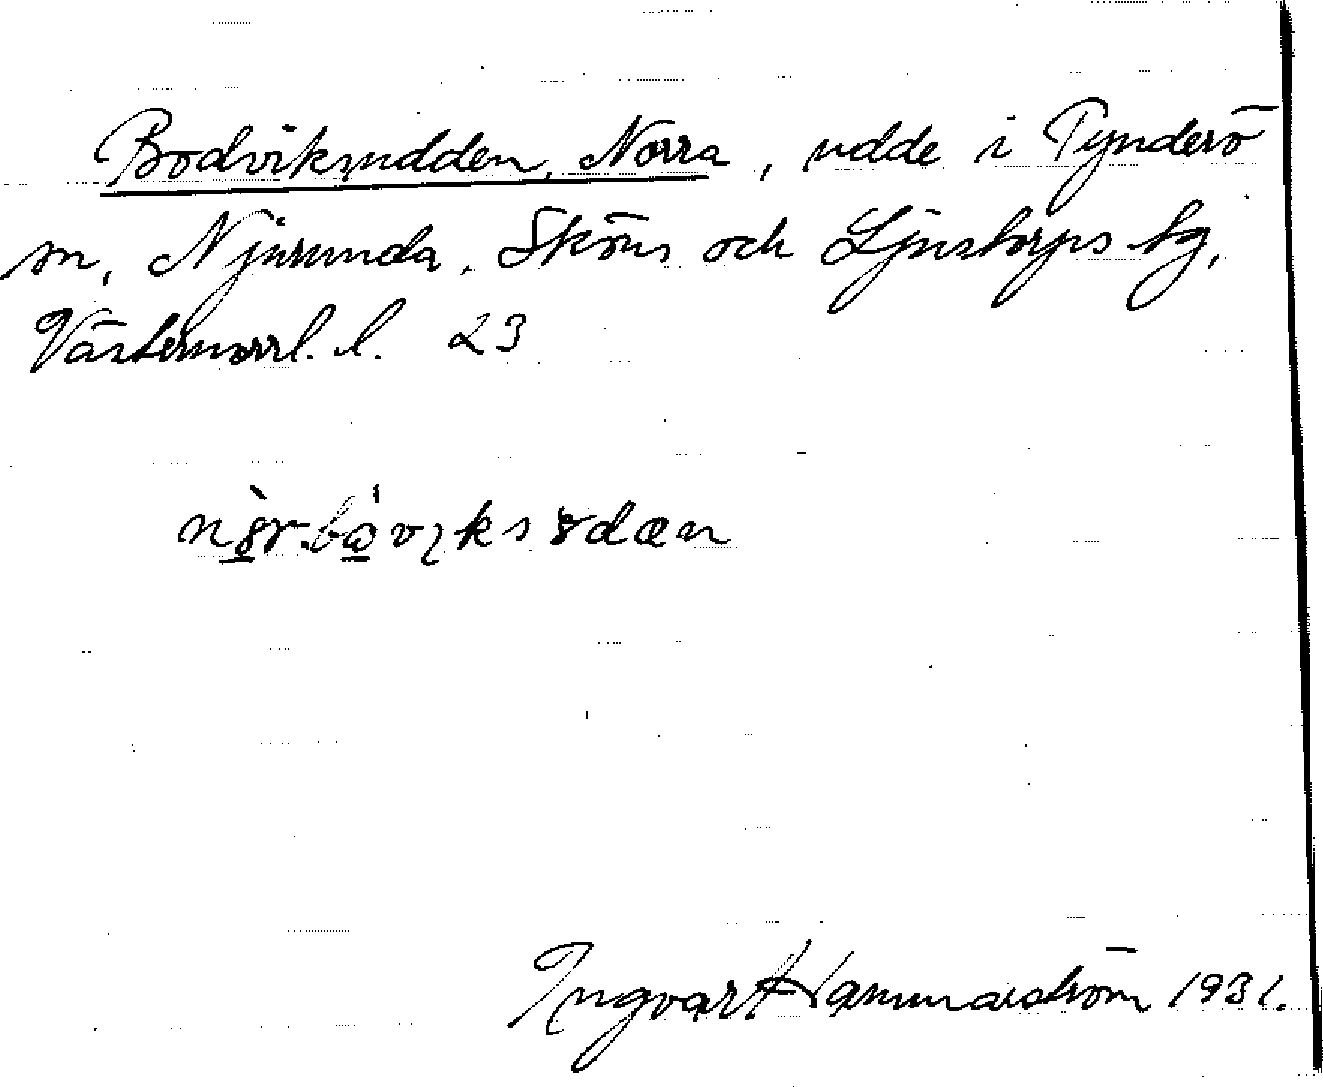 Bodviksudden, Norra, udde i Tynderö
sn, Njurunda, Sköns och Ljustorps tg,
Västernorrl. l. 23
Ingvar Hammarström 1931.